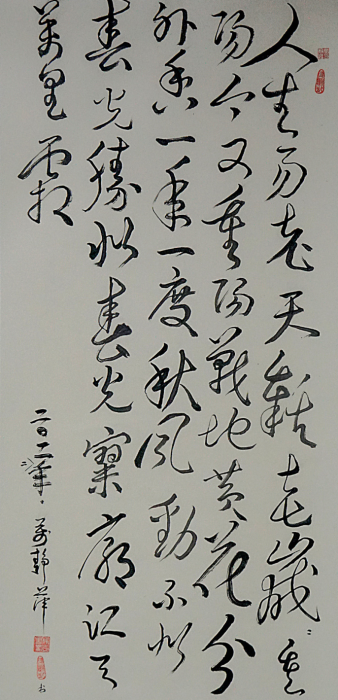 人生易老天難老歲〻重
陽今又重陽戰地黄花分
外香一年一度秋風勁不似
春光勝似春光寥廓江天
萬里霜
萬静萍
书